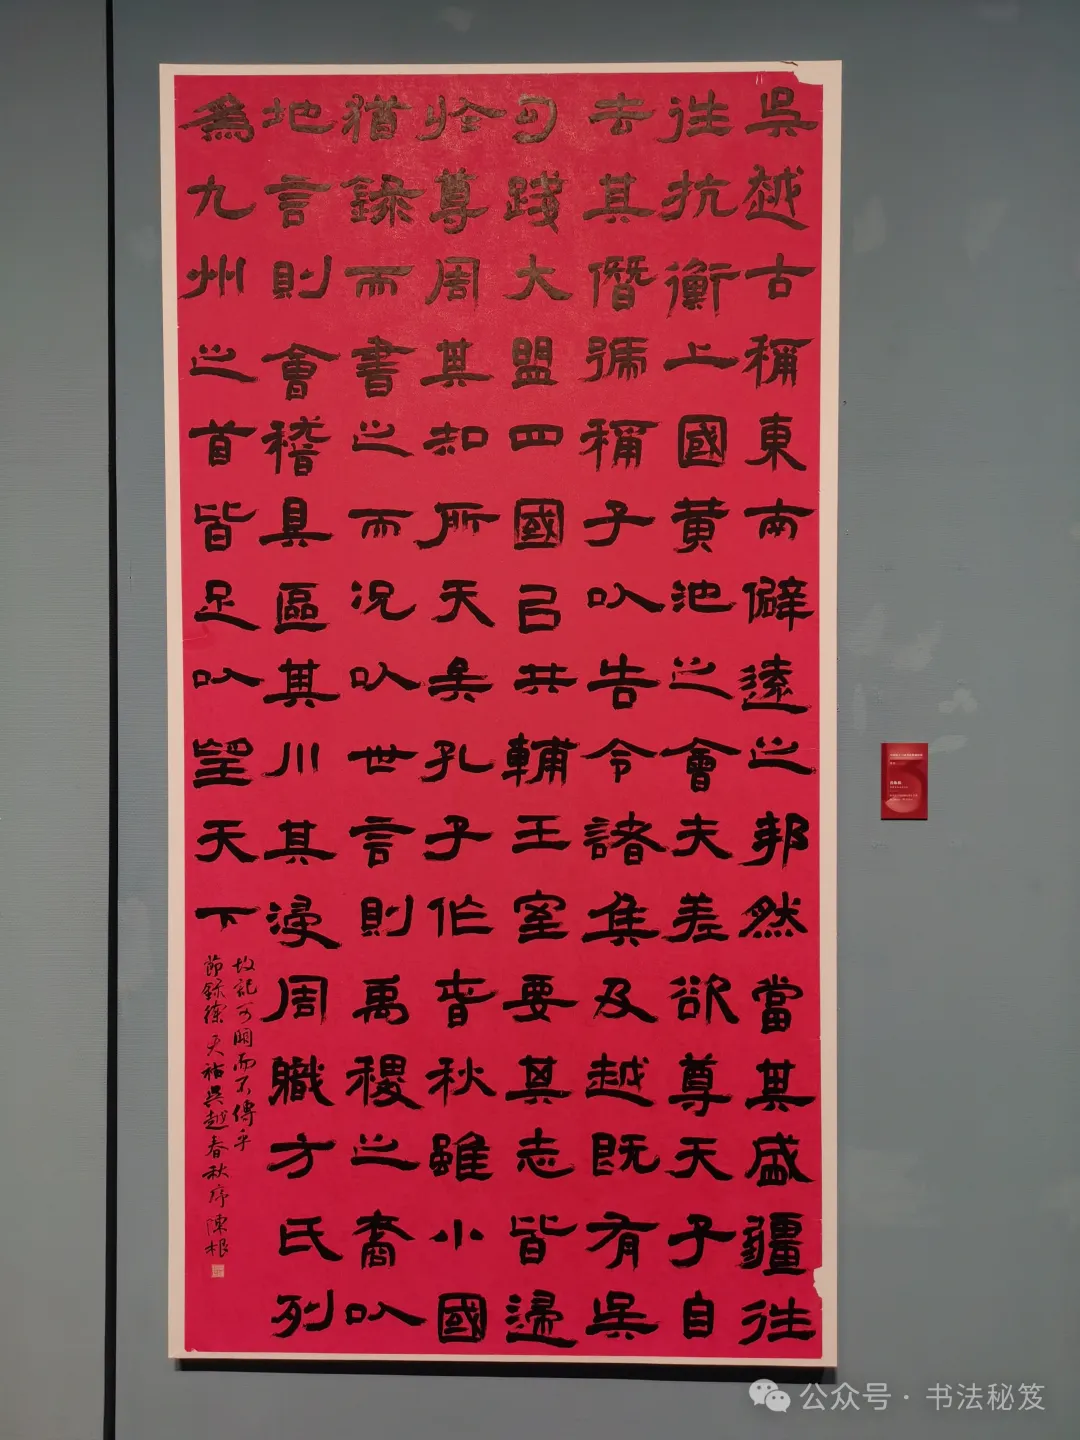 吳越古稱東南僻遠之邦然當其盛疆往
往抗衡上國黃池之會夫差欲尊天子自
去其僭號稱子以告令諸矦及越既有吳
句踐大盟四國㠯共輔王室要其志皆歸
於尊周其知所天矣孔子作春秋雖小國
猶錄而書之而況以世言則禹稷之裔以
地言則會稽具區其川其浸周職方氏列
為九州之首皆足以望天下
故記可闕而不傳乎
節錄徐天祜吳越春秋序 陳根
公众号·书法秘笈